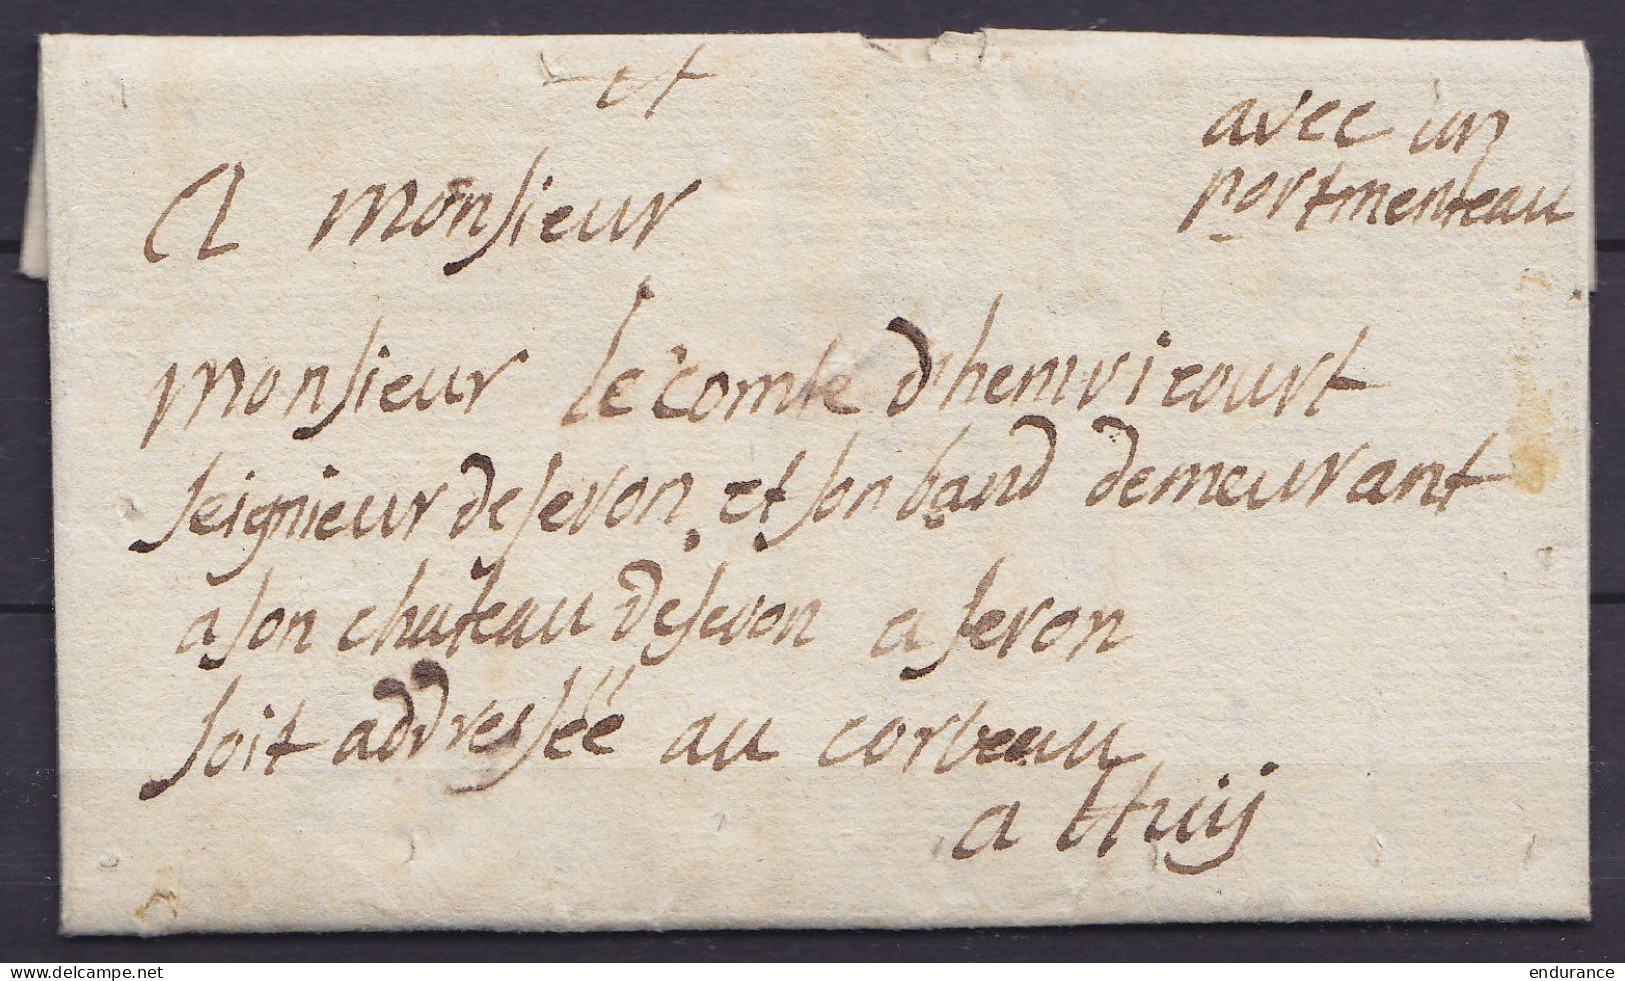 avec un
portmenteau
A Monsieur
Monsieur le comte d'hemricourt
seignieur de seron et son band demeurant
a son chateau de seron a seron
soit addressée au corbeau
a Huij
delcampe.net
endurance